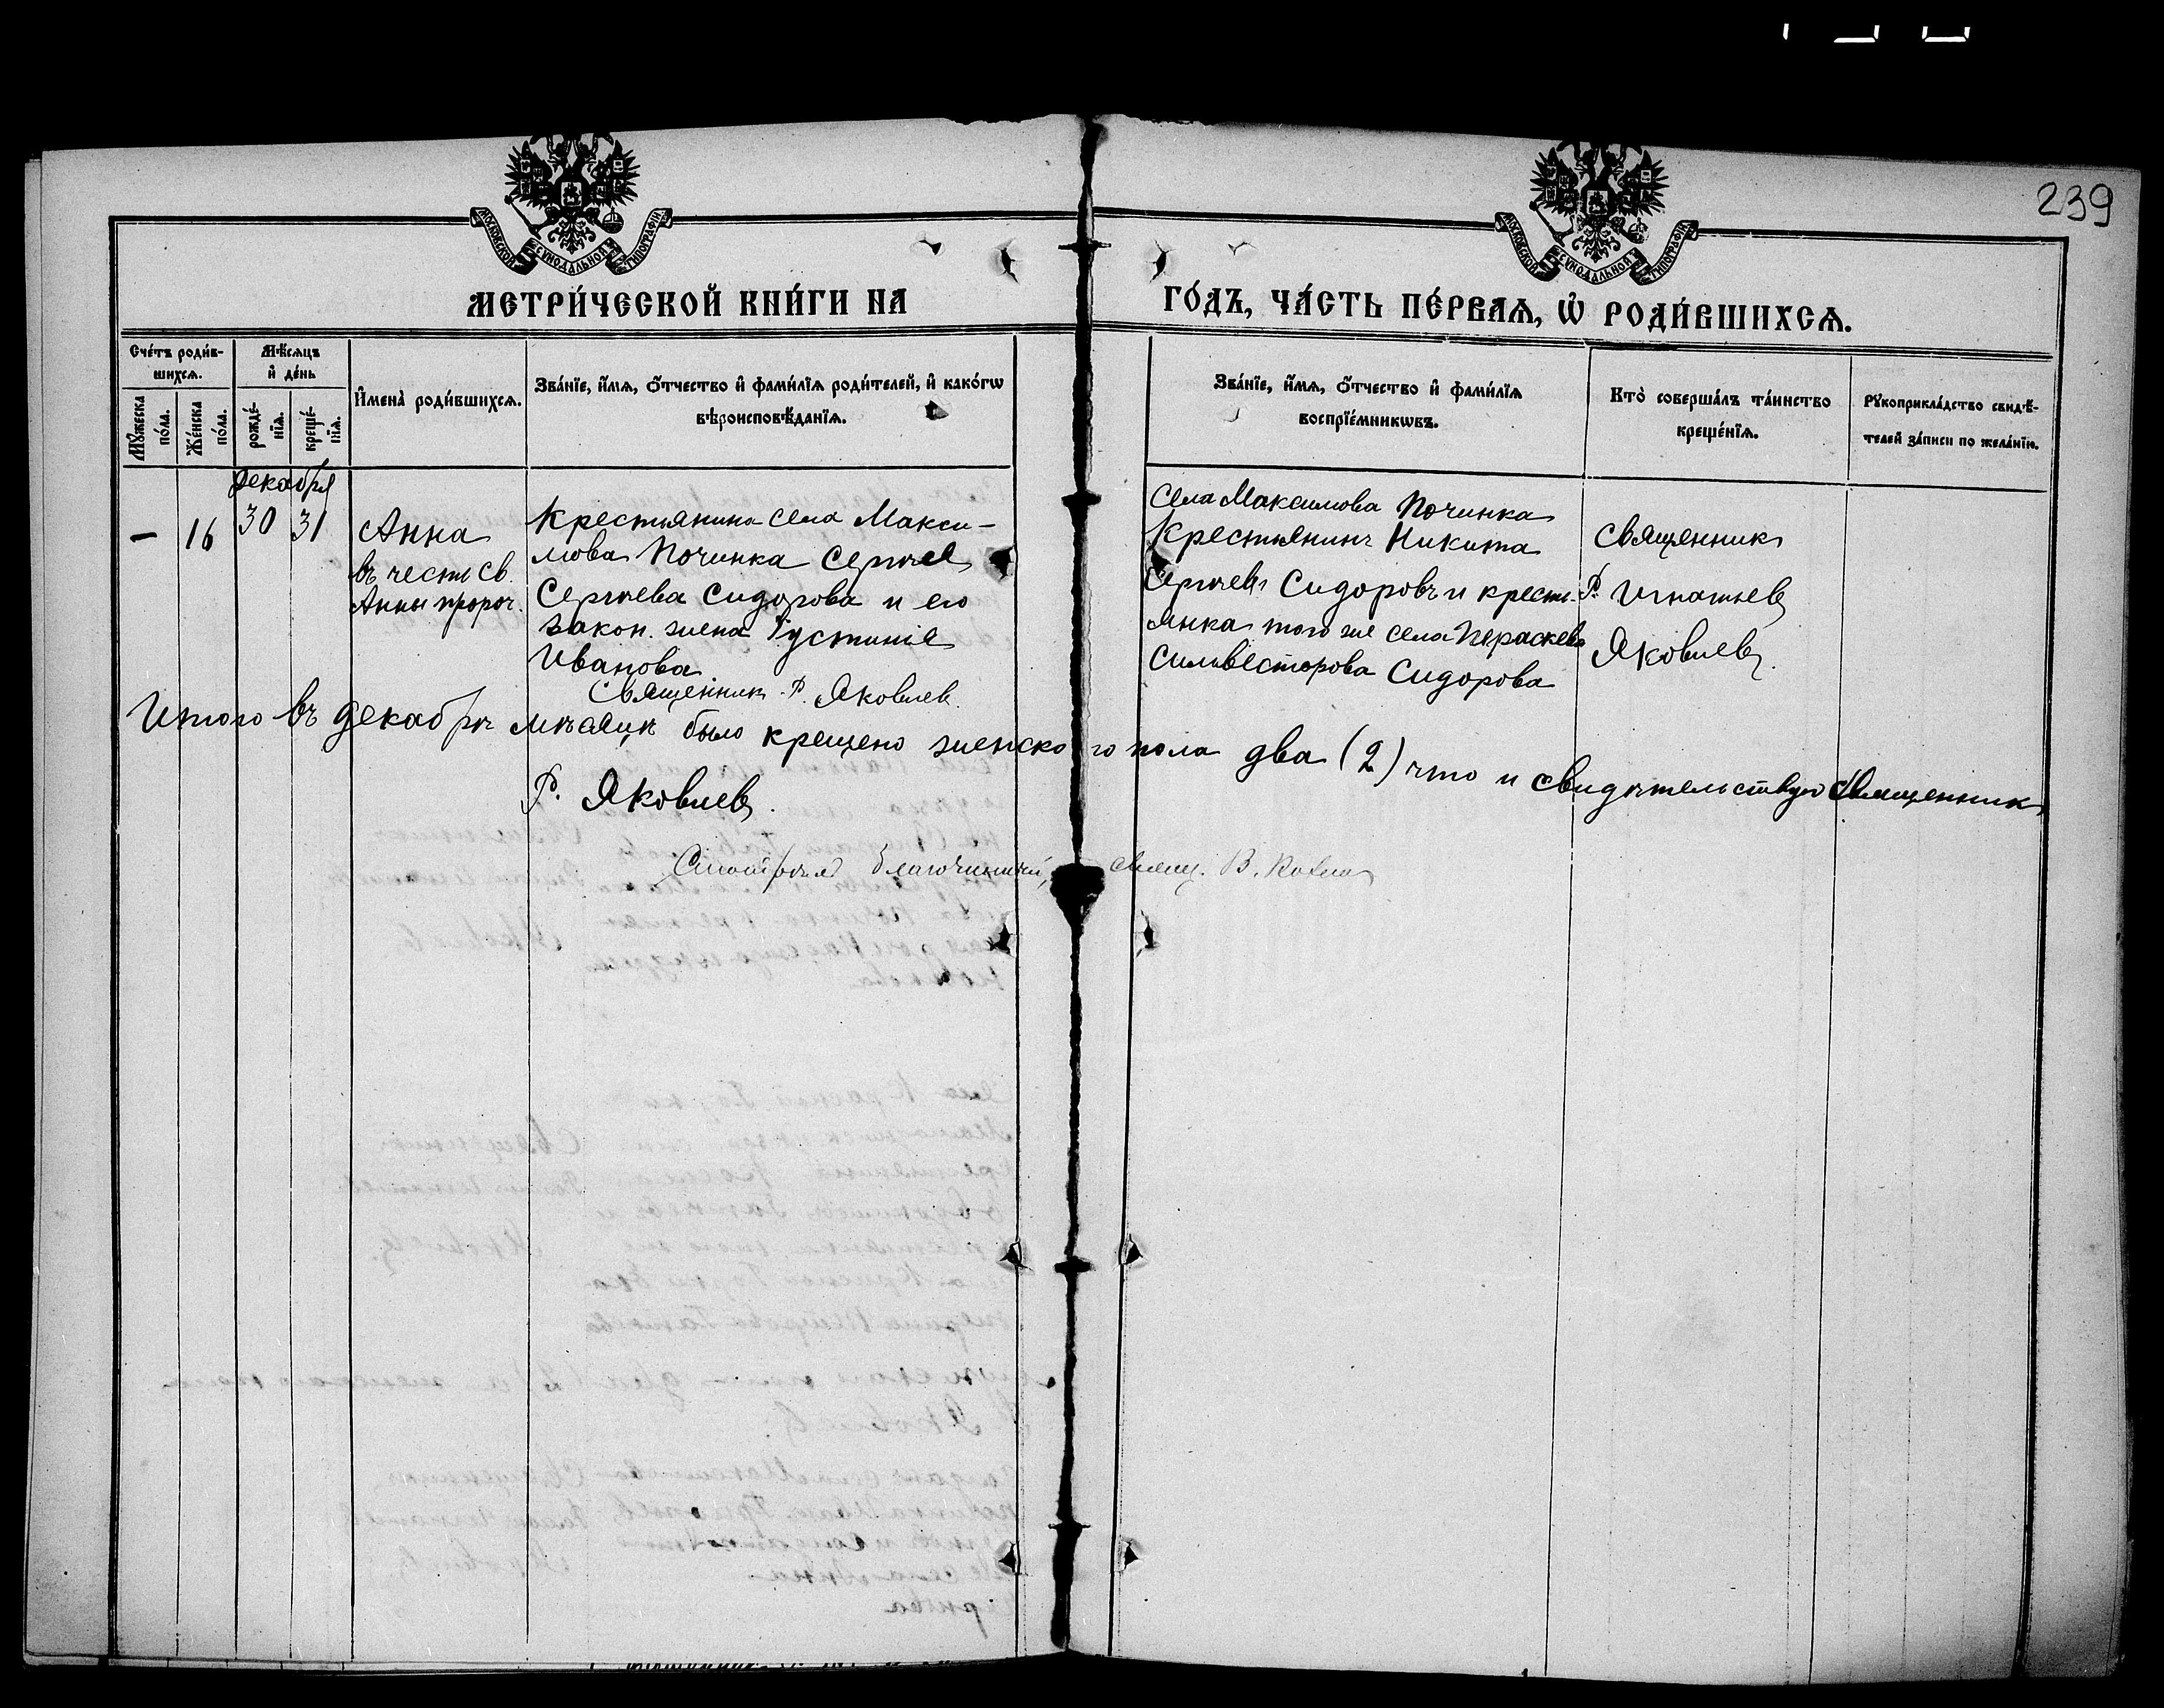 239
МОСКОВСКОЙ СѴНОДАЛЬНОЙ ТИПОГРАФІИ
МОСКОВСКОЙ СѴНОДАЛЬНОЙ ТИПОГРАФІИ
МЕТРИ́ЧЕСКОЙ КНИ́ГИ НА
ГО́ДЪ, ЧА́СТЬ ПЕ́РВАѦ, Ѡ҆ РОДИ́ВШИХСѦ.
Сче́тъ роди́в-
шихсѧ.
Мѣ́сѧцъ
и҆ де́нь
Мꙋ́жеска
по́ла.
Же́нска
по́ла.
рожде́-
нїѧ.
креще́-
нїѧ.
И҆мена̀ роди́вшихсѧ.
Зва́нїе, и҆́мѧ, ѻ҆́тчество и҆ фами́лїѧ роди́телей, и҆ како́гѡ
вѣроисповѣ́данїѧ.
Зва́нїе, и҆́мѧ, ѻ҆́тчество и҆ фами́лїѧ
воспрїе́мникѡвъ.
Кто̀ соверша́лъ та́инство
креще́нїѧ.
Рꙋкоприкла́дство свидѣ́-
телей за́писи по жела́нїю.
Декабря
— 16 30 31
Анна
въ честь Св.
Анны пророч.
Крестьянина села Макси-
мова Починка Сергѣя
Сергѣева Сидорова и его
закон. жена Іустинія
Иванова
Священникъ Р. Яковлевъ.
Села Максимова Починка
Крестьянинъ Никита
Сергѣевъ Сидоровъ и крестъ-
янка того же села Параскева
Сильвестрова Сидорова
Священникъ
Р. Игнатьевъ
Яковлевъ.
Итого въ декабрѣ мѣсяцѣ было крещено женского пола два (2) что и свидѣтельствую Священникъ
Р. Яковлевъ.
Смотрѣлъ благочинный, свящ. В.